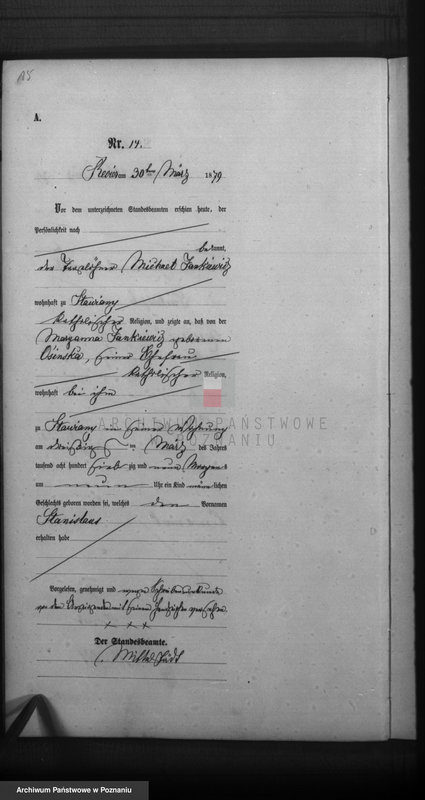 A.
Nr. 14.
am 30ten März 1879
Vor dem unterzeichneten Standesbeamten erschien heute, der
Persönlichkeit nach
bekannt,
der Tagelöhner Michael Jankiewicz
wohnhaft zu
katholischer Religion, und zeigte an, daß von der
Maryanna Jankiewicz geborenen
Osinska, seiner Ehefrau
katholischer Religion,
wohnhaft bei ihm
zu in seiner Wohnung
am dreißigsten März des Jahres
tausend acht hundert siebzig und neun Morgens
um neun Uhr ein Kind männlichen
Geschlechts geboren worden sei, welches den Vornamen
Stanislaus
erhalten habe
Vorgelesen, genehmigt und wegen
von dem mit seinem Handzeichen versehen
+ + +
Der Standesbeamte.
ARCHIWUM PAŃSTWOWE
W POZNANIU
Archiwum Państwowe w Poznaniu